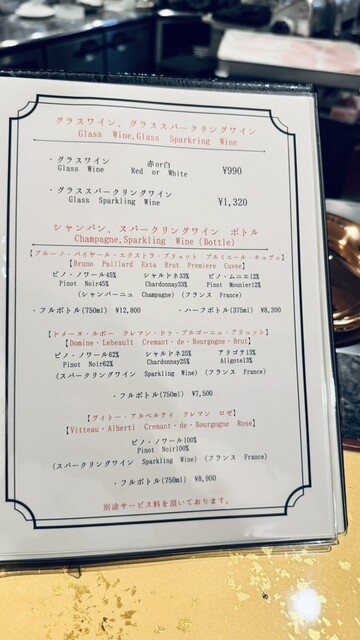 グラスワイン、グラススパークリングワイン
Glass Wine,Glass Sparkring Wine
・グラスワイン 赤or白 ¥990
Glass Wine Red or White
・グラススパークリングワイン ¥1,320
Glass Sparkling Wine
シャンパン、スパークリングワイン ボトル
Champagne,Sparkling Wine (Bottle)
【ブルーノ・パイヤール・エクストラ・ブリュット プルミエール・キュヴェ】
【Bruno Paillard Exta Brut Premiere Cuvee】
ピノ・ノワール45% シャルドネ33% ピノ・ムニエ12%
Pinot Noir45% Chardonnay33% Pinot Mounier12%
(シャンパーニュ Champagne) (フランス France)
・フルボトル(750ml) ¥12,800 ・ハーフボトル(375ml) ¥8,200
【ドメーヌ・ルボー クレマン・ドゥ・ブルゴーニュ・ブリュット】
【Domine・Lebeault Cremant・de・Bourgogne・Brut】
ピノ・ノワール62% シャルドネ25% アリゴテ13%
Pinot Noir62% Chardonnay25% Aligote13%
(スパークリングワイン Sparkling Wine) (フランス France)
・フルボトル(750ml) ¥7,500
【ヴィトー・アルベルティ クレマン ロゼ】
【Vitteau・Alberti Cremant・de・Bourgogne Rose】
ピノ・ノワール100%
Pinot Noir100%
(スパークリングワイン Sparkling Wine) (フランス France)
・フルボトル(750ml) ¥8,900
別途サービス料を頂いております。